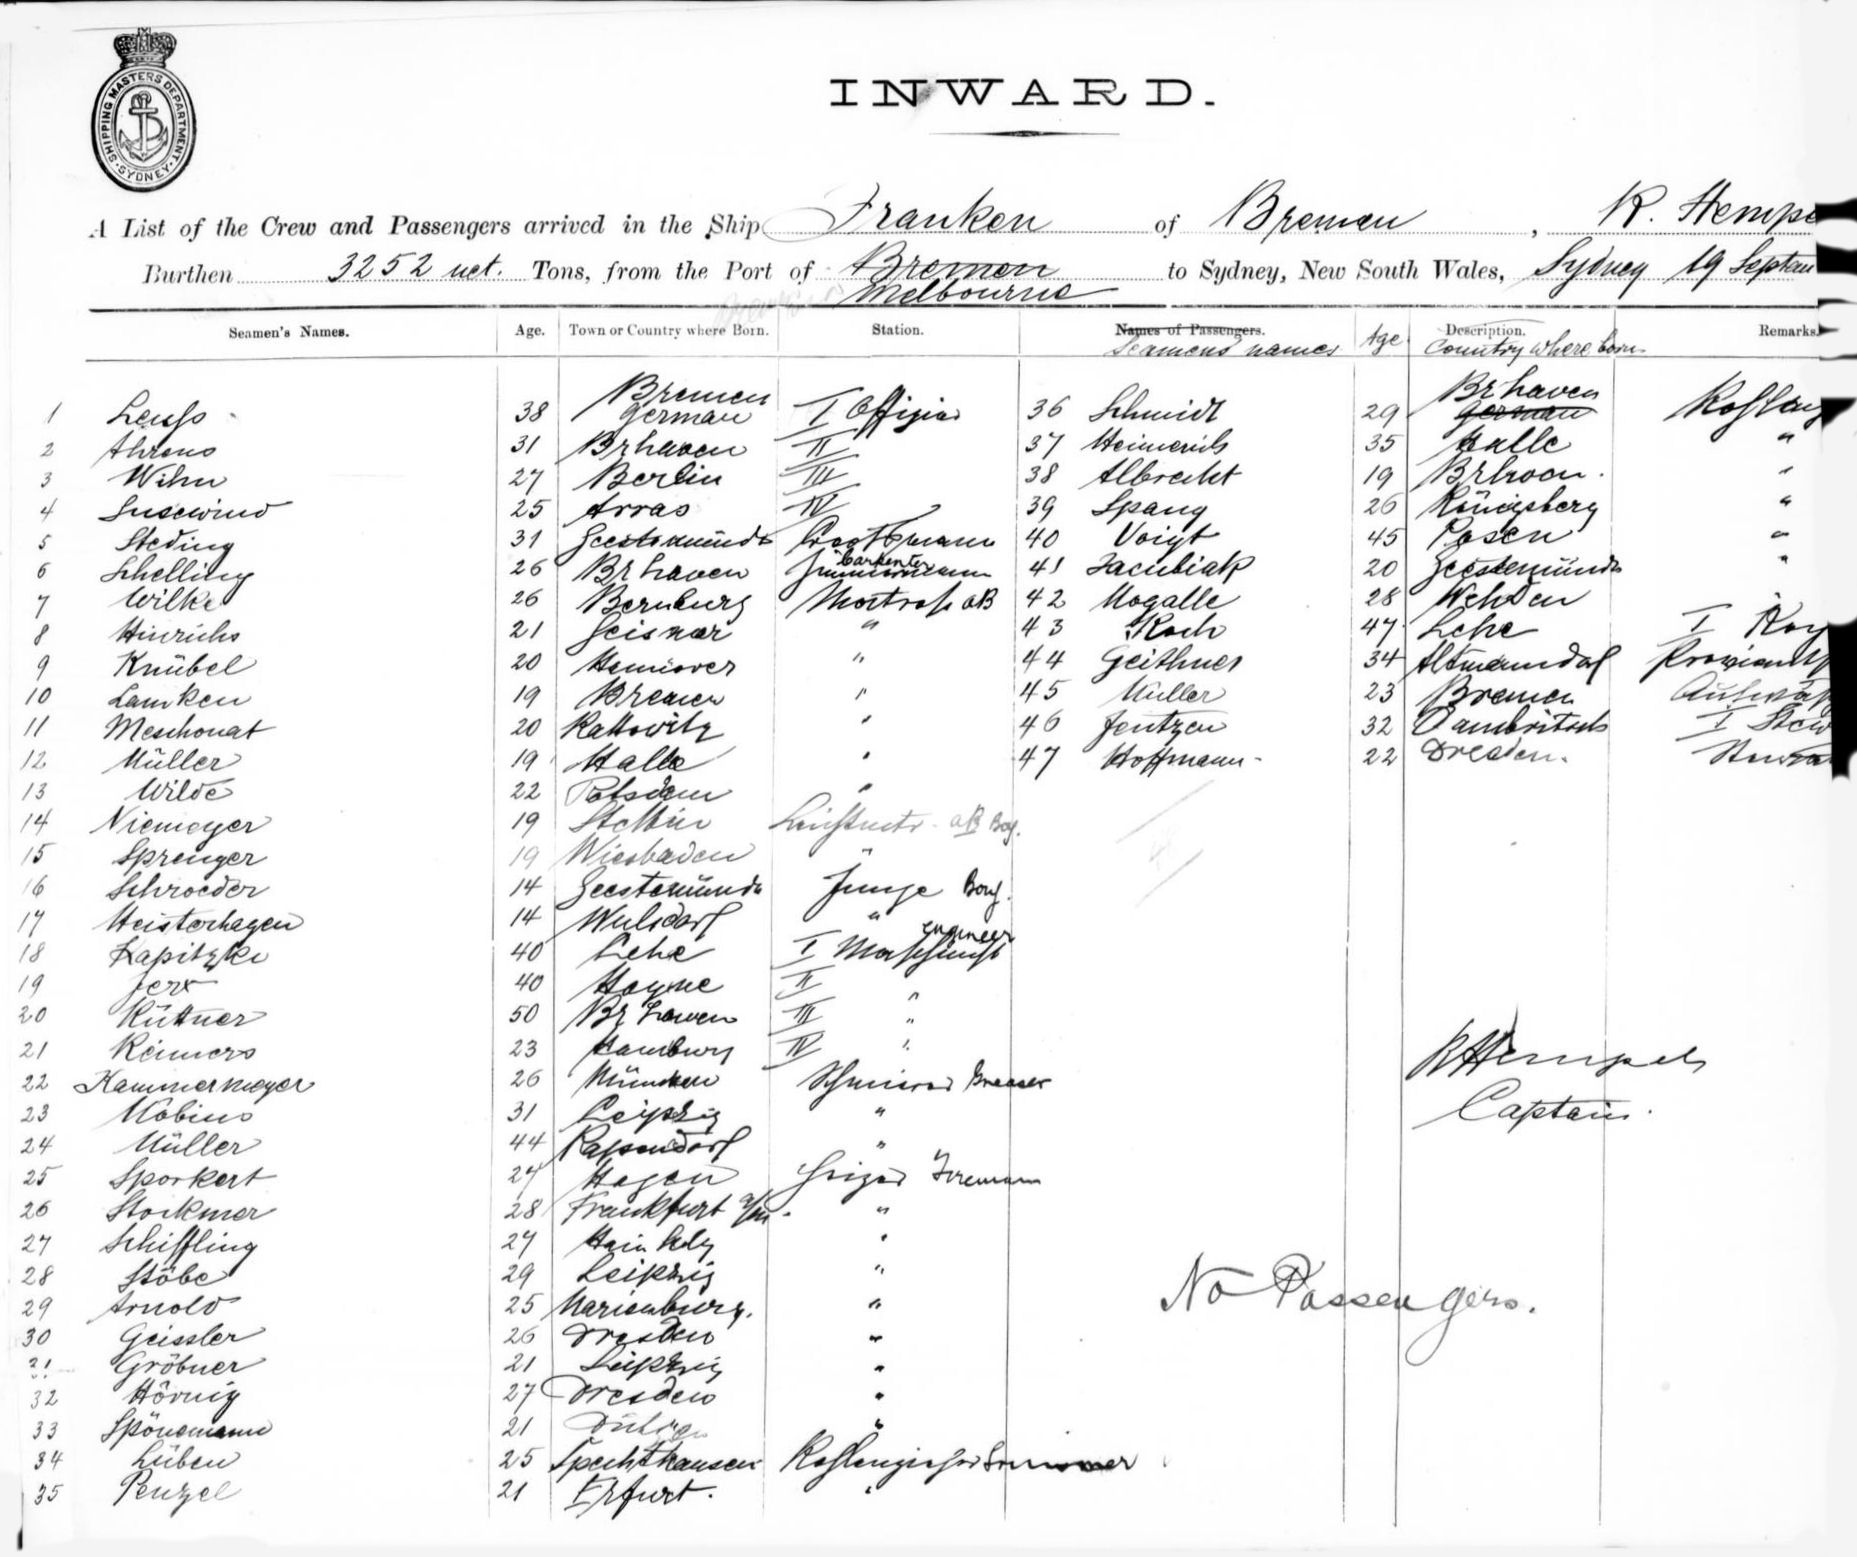 SHIPPING MASTERS DEPARTMENT. SYDNEY
INWARD.
A List of the Crew and Passengers arrived in the Ship Franken of Bremen, R. Hempe
Burthen 3252 net. Tons, from the Port of Bremen to Sydney, New South Wales, Sydney 19 Septem
Melbourne
Seamen's Names. Age. Town or Country where Born. Station. Names of Passengers. Age Description. Remarks.
Seamens names Country where born
Bremen Brhaven
1 Leuss 38 German I Offizier 36 Schmidt 29 German Kohlenz
2 Ahrens 31 Brhaven II 37 Heimerich 35 Halle "
3 Wihn 27 Berlin III 38 Albrecht 19 Brhaven "
4 Susewind 25 Arras IV 39 Spang 26 Königsberg "
5 Steding 31 Geestemünde Bootsmann 40 Voigt 45 Posen "
Carpenter
6 Schelling 26 Brhaven Zimmermann 41 Jacubiak 20 Geestemünde "
7 Wilke 26 Bernburg Matrose AB 42 Mogalle 28 Wehden
8 Hinrichs 21 Geismar " 43 Koch 47 Lehe I Koc
9 Knübel 20 Hannover " 44 Geithner 34 Proviant
10 Lamken 19 Bremen " 45 Müller 23 Bremen Aufwä
11 Meschonat 20 Kattowitz " 46 Jentzen 32 Dambritsch I Stew
12 Müller 19 Halle " 47 Hoffmann 22 Dresden. Stewa
13 Wilde 22 Potsdam "
14 Niemeyer 19 Stettin Leichtmatr. AB Boy.
15 Sprenger 19 Wiesbaden "
16 Schroeder 14 Geestemünde Junge Boy.
17 Heisterhagen 14 Wulsdorf "
engineer
18 Kapitzke 40 Lehe I Maschinist
19 Jerx 40 Hoyme II
20 Küttner 50 Brhaven III "
21 Reimers 23 Hamburg IV "
R Hempel
22 Kammermeyer 26 München Schmierer Greaser
23 Möbius 31 Leipzig "
Captain.
24 Müller 44 "
25 Sporkert 27 Hagen Heizer Fireman
26 Stockmer 28 Frankfurt a/M. "
27 Schiffling 27 "
28 Stöbe 29 Leipzig "
29 Arnold 25 Marienburg. "
No Passengers.
30 Geissler 26 Dresden "
31 Gröbner 21 Leipzig "
32 Hörnig 27 Dresden "
33 Spönemann 21 "
34 Lüben 25 Spechthausen Kohlenzieher Trimmer
35 Penzel 21 Erfurt. "